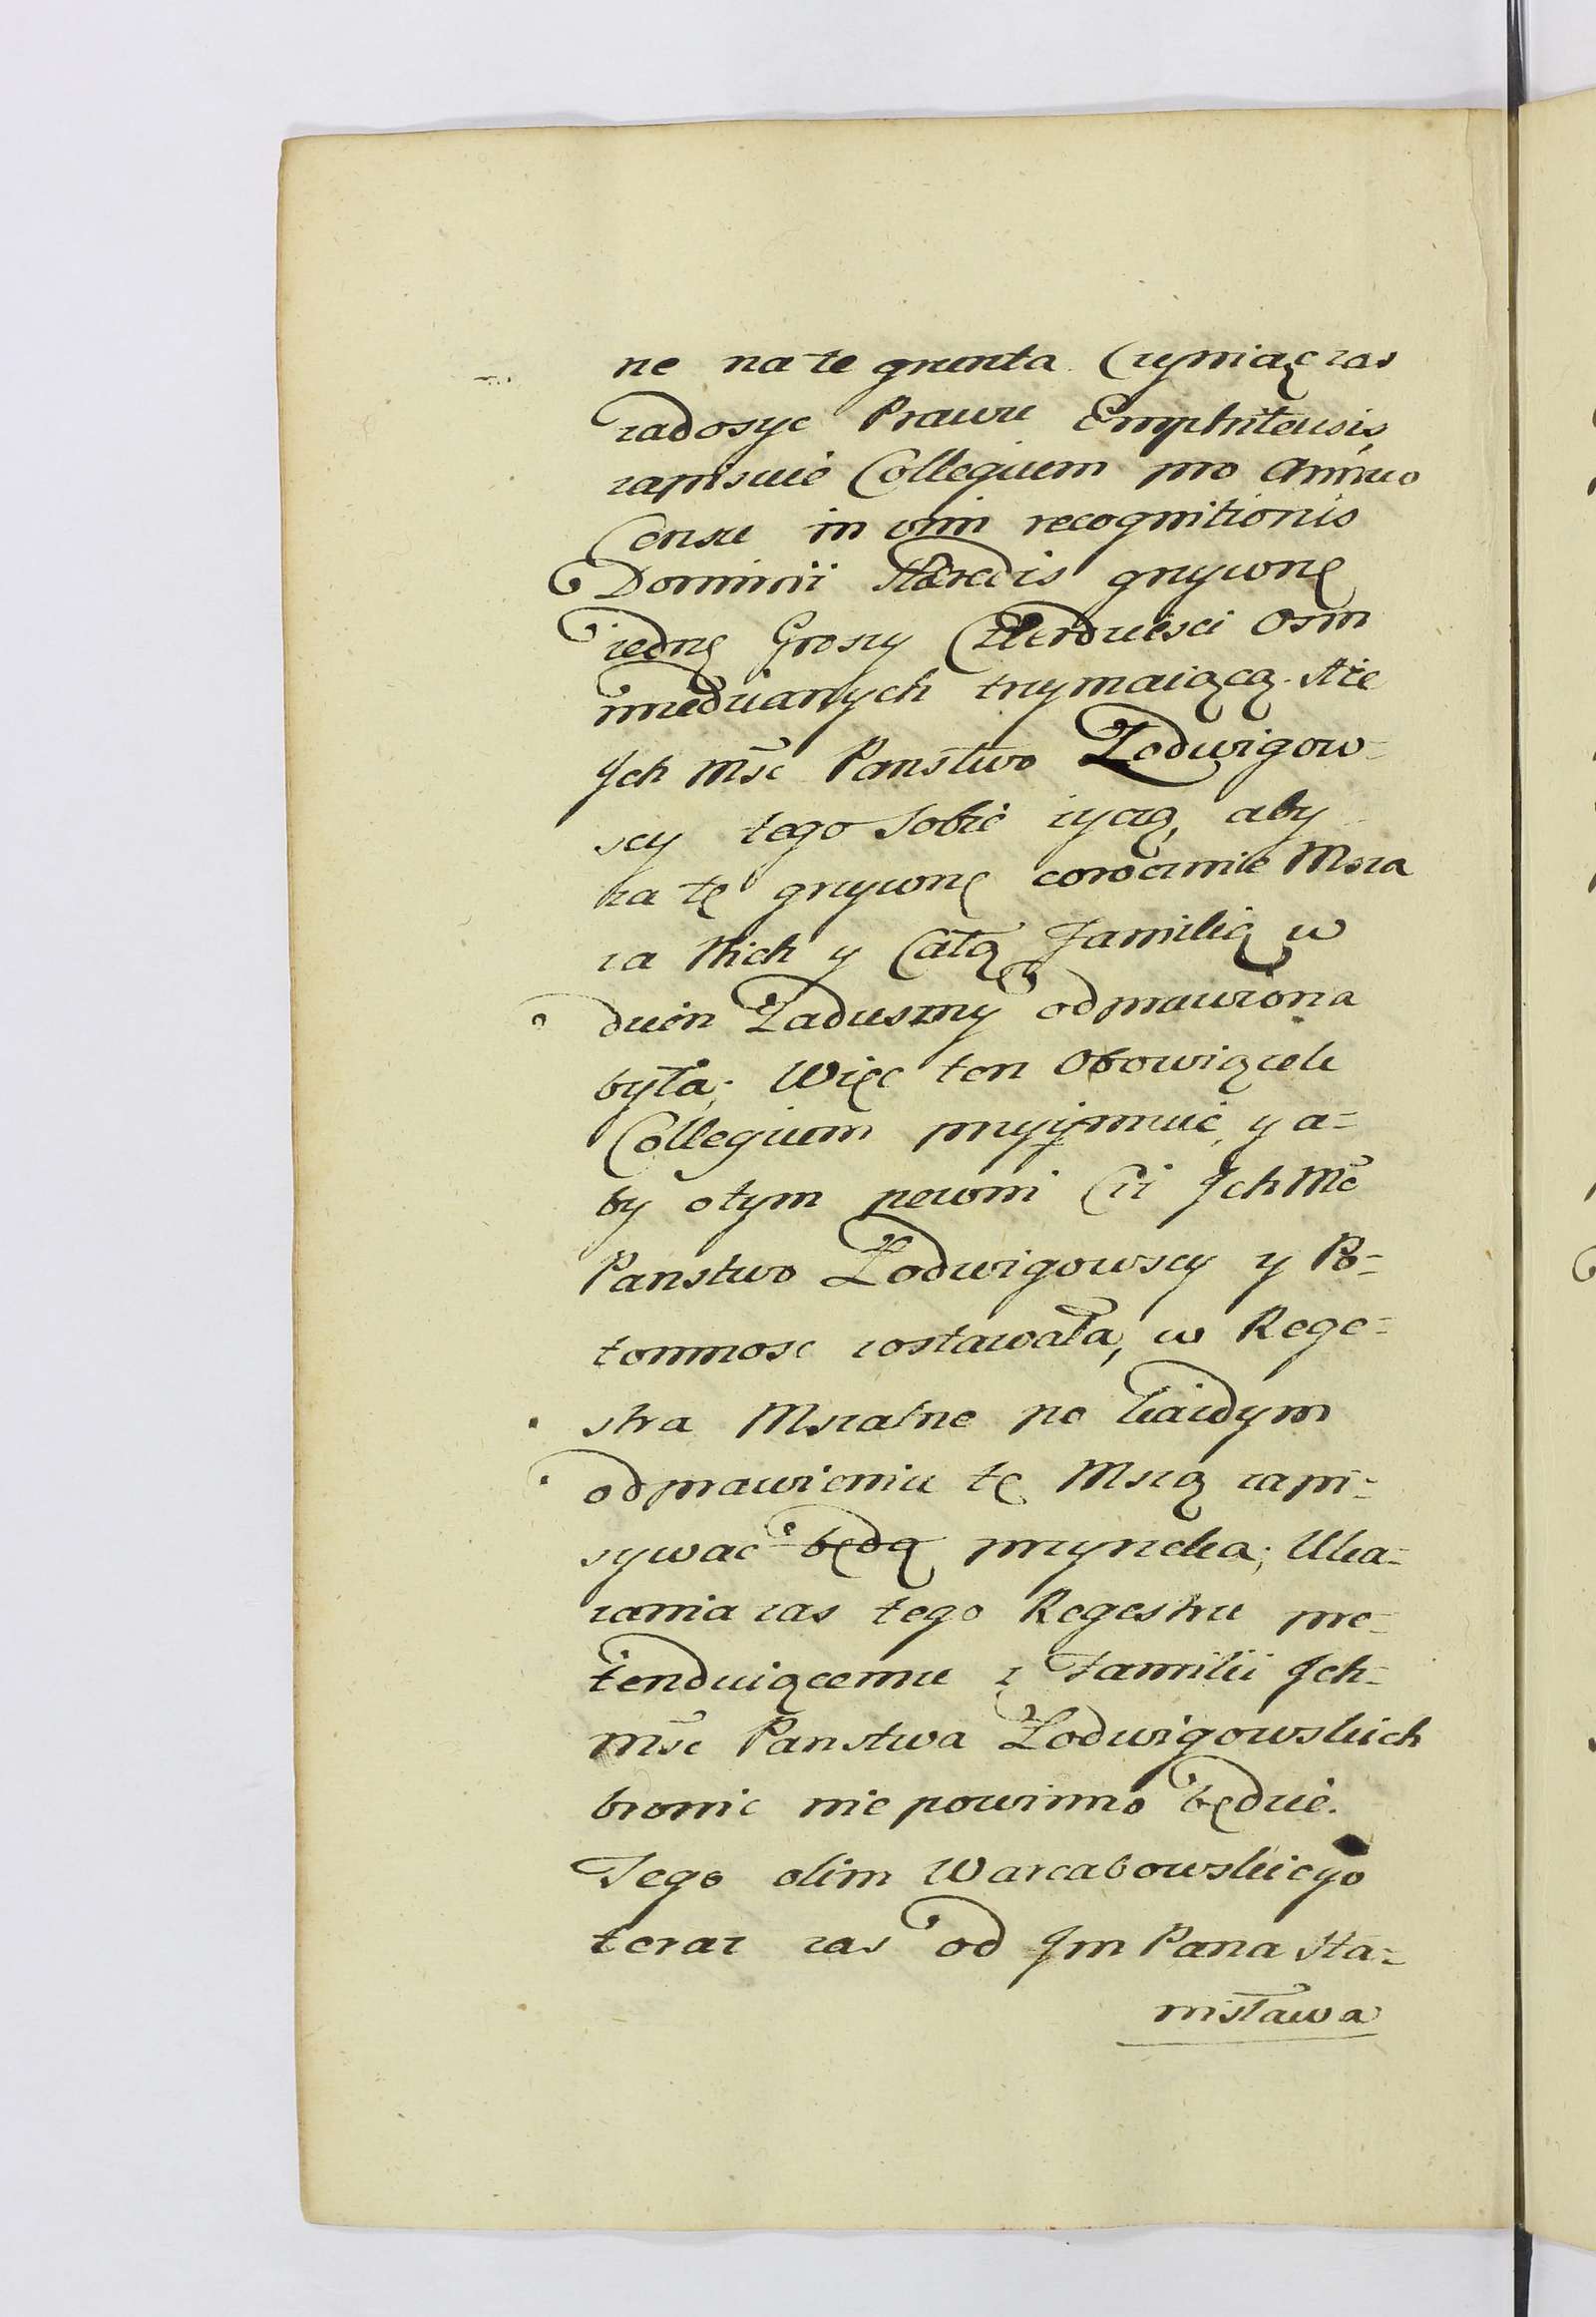 ne na te grunta Czyniąc zas
zadosyc Prawu Emphiteusis,
zapisuie Collegium pro Annuo
Censu in vim recognitionis
Dominii Hæredis grzywnę
iednę Groszy Czterdziesci Osm
miedzianych trzymaiącą. Aże
Jch Mśc Panstwo Łodwigow-
scy tego Sobie zyczą, aby
za tę grzywnę corocznie Msza
za Nich y Całą Familią w
dzien Zaduszny odprawiona
była; Więc ten Obowiązek
Collegium przyjmuie, y a=
by otym pewni Cii Jch Mć
Panstwo Łodwigowscy y Po-
tomnosc zostawała, w Rege-
stra Mszalne po kazdym
odprawieniu tę Mszą zapi-
sywac będą przyrzeka; Uka-
zania zas tego Regestru pre-
tenduiącemu z Familii Jch-
mśc Panstwa Łodwigowskich
bronic nie powinno będzie.
Tego olim Warcabowskiego
teraz zas od Jm Pana Sta-
nisława